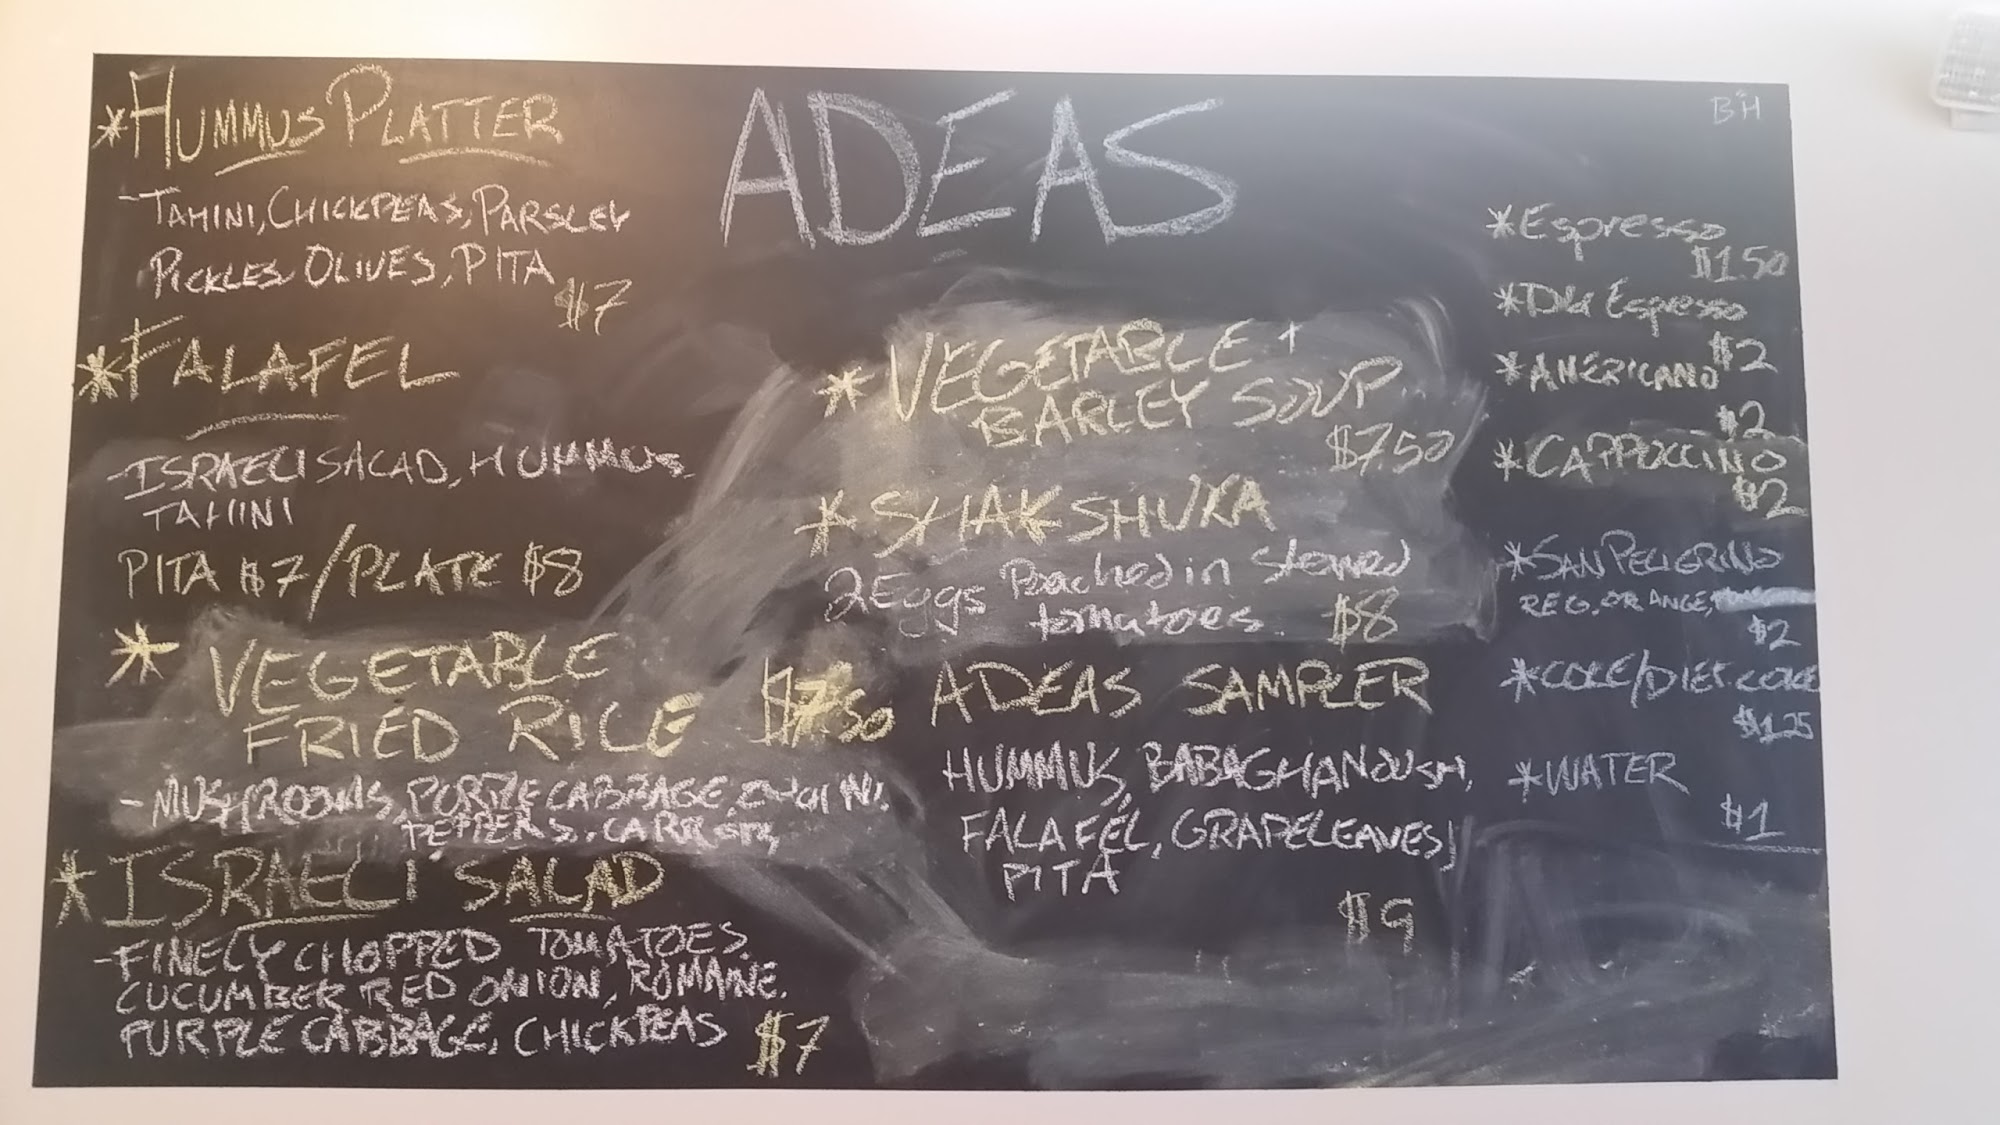 ADEAS
B"H
*HUMMUS PLATTER
-TAHINI, CHICKPEAS, PARSLEY
PICKLES OLIVES, PITA
$7
*FALAFEL
-ISRAELI SALAD, HUMMUS,
TAHINI
PITA $7/PLATE $8
* VEGETABLE
FRIED RICE $7.50
-MUSHROOMS, PURPLE CABBAGE, ZUCHINI,
PEPPERS, CARROTS,
*ISRAELI SALAD
-FINELY CHOPPED TOMATOES,
CUCUMBER, RED ONION, ROMAINE,
PURPLE CABBAGE, CHICKPEAS $7
* VEGETABLE +
BARLEY SOUP
$750
* SHAKSHUKA
2 Eggs Poached in stewed
tomatoes. $8
ADEAS SAMPLER
HUMMUS, BABAGHANOUSH,
FALAFEL, GRAPELEAVES,
PITA
$9
*Espresso
$150
*Dbl Espresso
$2
*AMERICANO
$2
*CAPPUCCINO
$2
*SAN PELIGRINO
REG, ORANGE,
$2
*COKE/DIET COKE
$1.25
*WATER
$1